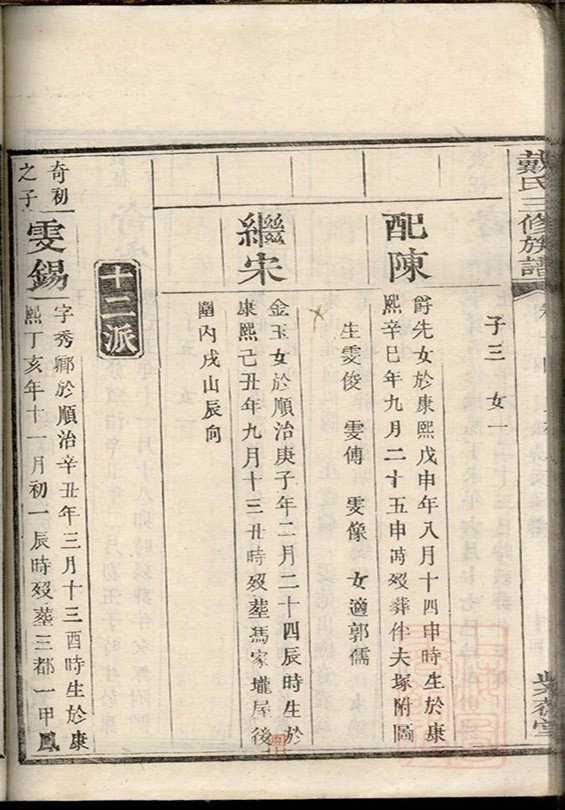 戴氏三修族譜
子三 女一
配陳
爵先女於康熙戊申年八月十四申時生於康
熙辛巳年九月二十五申時歿葬件夫塚附圖
生雯俊 雯傅 雯像 女適郭儒
繼宋
金玉女於順治庚子年二月二十四辰時生於
康熙己丑年九月十三丑時歿塟馮家壠屋後
園內戌山辰向
十二派
奇初
之子
雯錫
字秀鄉於順治辛丑年三月十三酉時生於康
熙丁亥年十一月初一辰時歿塟三都一甲鳳